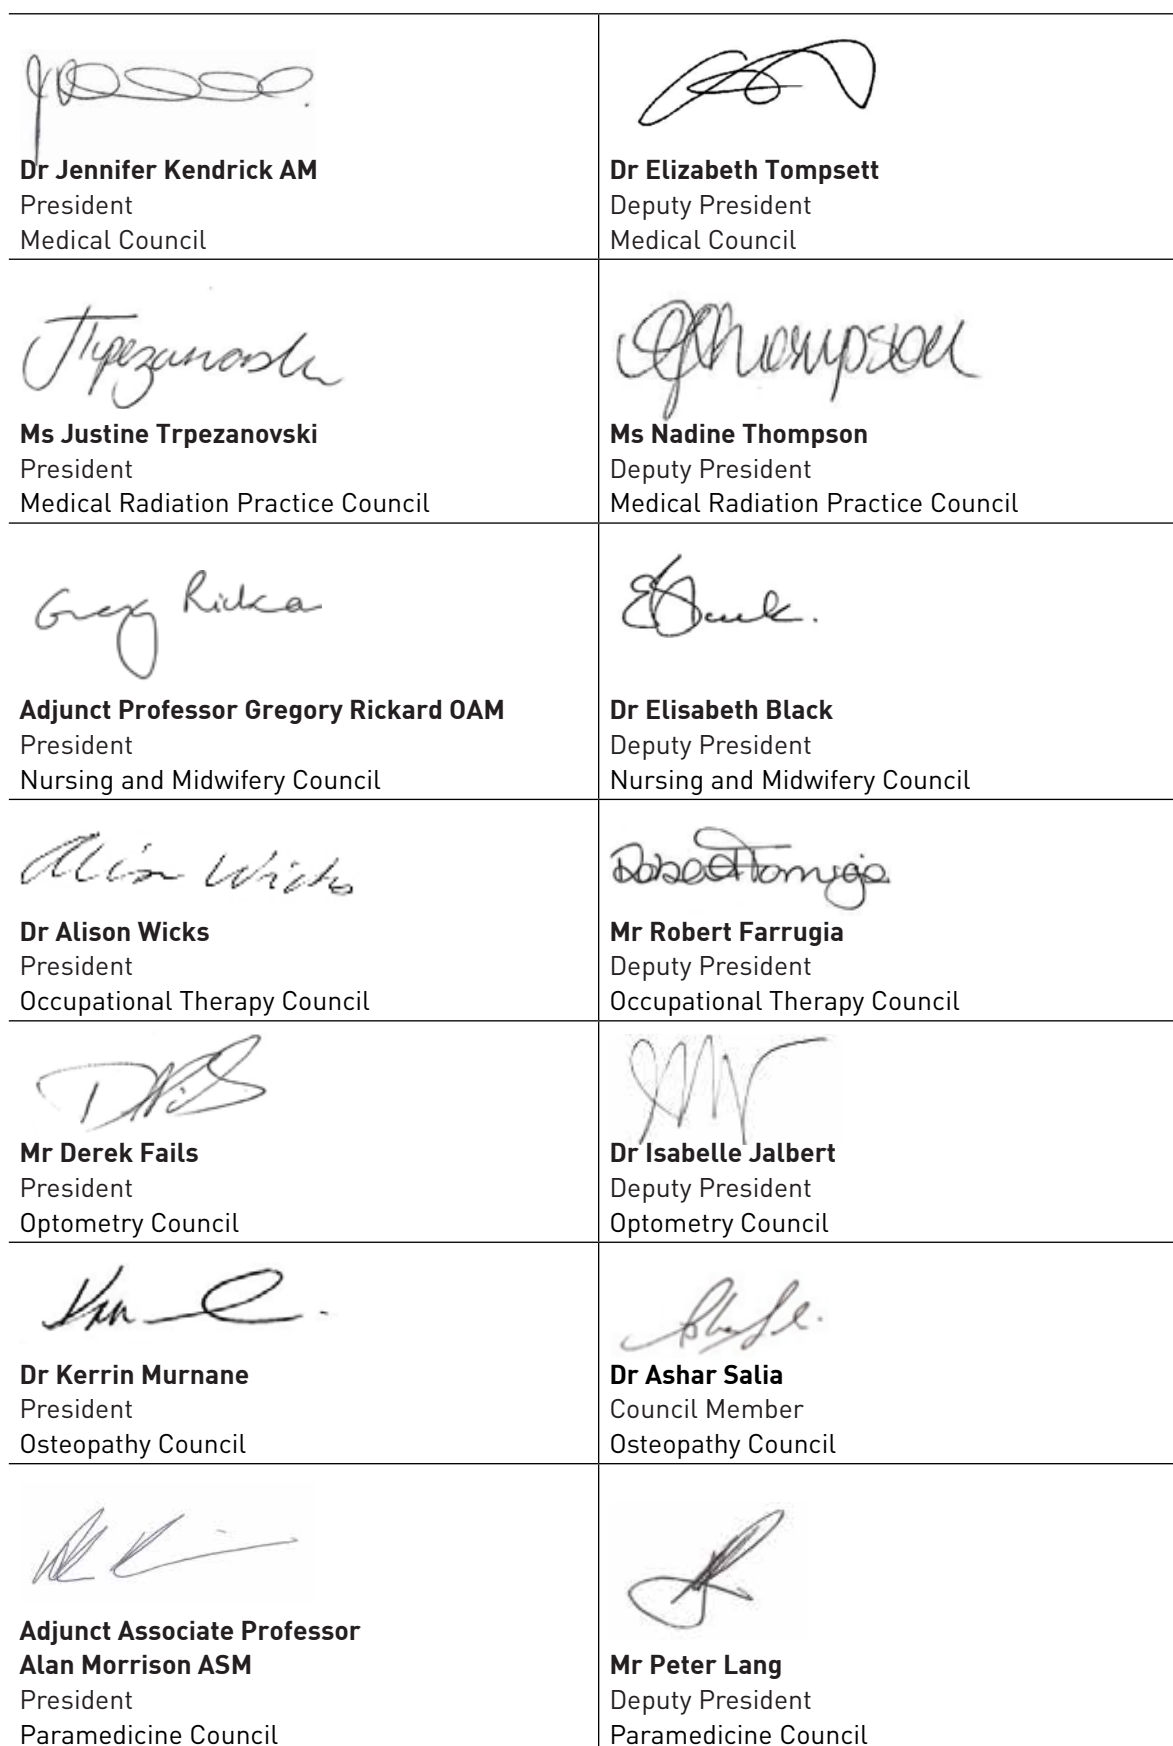 Dr Jennifer Kendrick AM
President
Medical Council
Dr Elizabeth Tompsett
Deputy President
Medical Council
Ms Justine Trpezanovski
President
Medical Radiation Practice Council
Ms Nadine Thompson
Deputy President
Medical Radiation Practice Council
Greg Ricka
Adjunct Professor Gregory Rickard OAM
President
Nursing and Midwifery Council
Dr Elisabeth Black
Deputy President
Nursing and Midwifery Council
Alison Wicks
Dr Alison Wicks
President
Occupational Therapy Council
Mr Robert Farrugia
Deputy President
Occupational Therapy Council
Mr Derek Fails
President
Optometry Council
Dr Isabelle Jalbert
Deputy President
Optometry Council
Dr Kerrin Murnane
President
Osteopathy Council
Dr Ashar Salia
Council Member
Osteopathy Council
Adjunct Associate Professor
Alan Morrison ASM
President
Paramedicine Council
Mr Peter Lang
Deputy President
Paramedicine Council